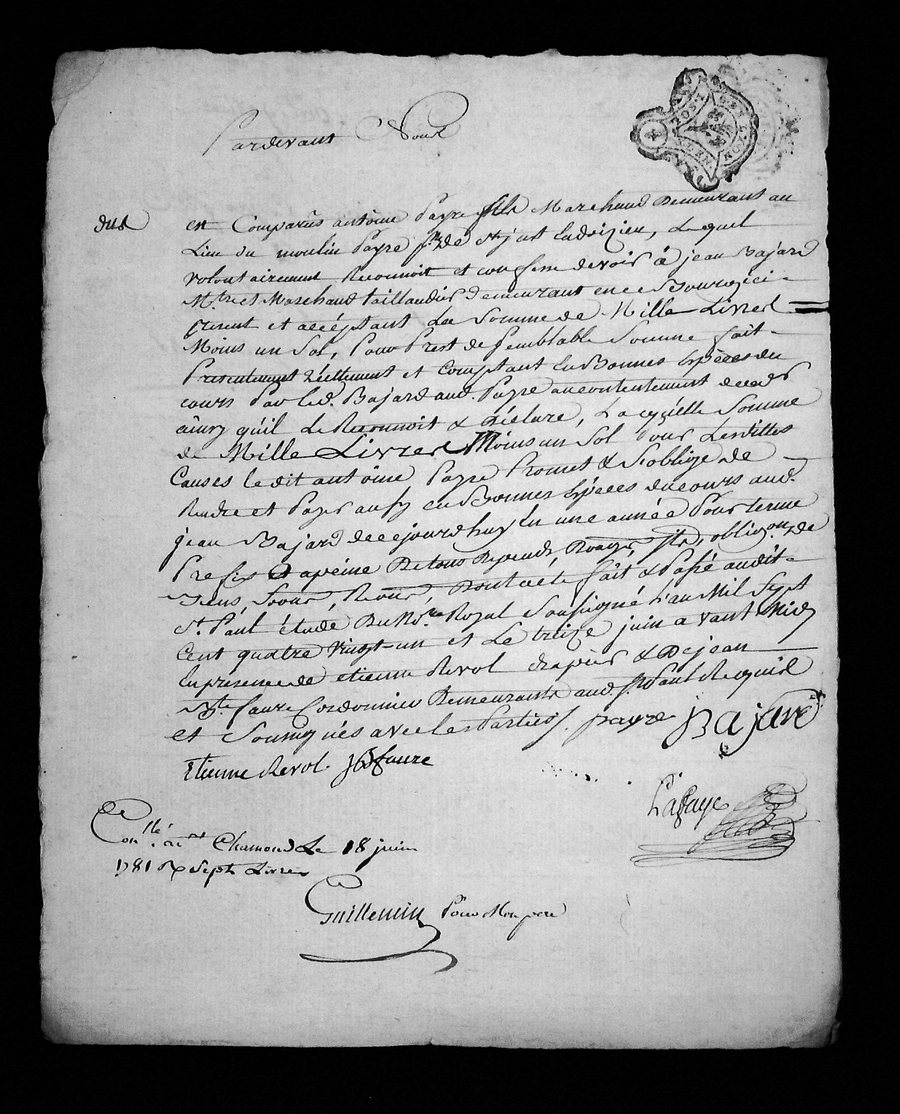 Pardevant Nous
est Comparus antoine Payre fils Marchand Demeurant au
Lieu du moulin Payre psse de St just En doizieu, Lequel
volontairement Reconnoit et confesse devoir à jean Bajard
Mtre et Marchand taillandier Demeurant en ce Bourg ici
present et accéptant La Somme de Mille Livres
Moins un Sol, Pour Prest de semblable Somme fait
Presentement Réellement et Comptant En Bonnes Espèces du
cours Par led. Bajard aud. Payre au contentement de ced
ainsy qu'il Le Reconnoit & Déclare, Laquelle Somme
de Mille Livres Moins un Sol Pour Lesdittes
Causes le dit antoine Payre Promet & S'oblige de
Rendre et Payer aussy en Bonnes Espèces du cours aud.
jean Bajard de ce jourd'huy En une année Pour terme
Prefix Et apeine De tous Depends, obligon. de
Biens, Soum, Renon, Dont acte fait & Passé audit
St. Paul étude Du Nore. Royal Soussigné L'an Mil Sept
Cent quatre Vingt-un et Le treize juin avant Midy
En presence de etienne Revol drapier & De jean
Bte. faure Cordonnier Demeurants aud. St Paul Requis
et Soussignés avec les Parties. payre Bajard
Etienne Revol. JB faure
Lafaye
Conllé. a St Chamond Le 18 juin
1781 Sept Livres
Guillemin Pour Mon pere